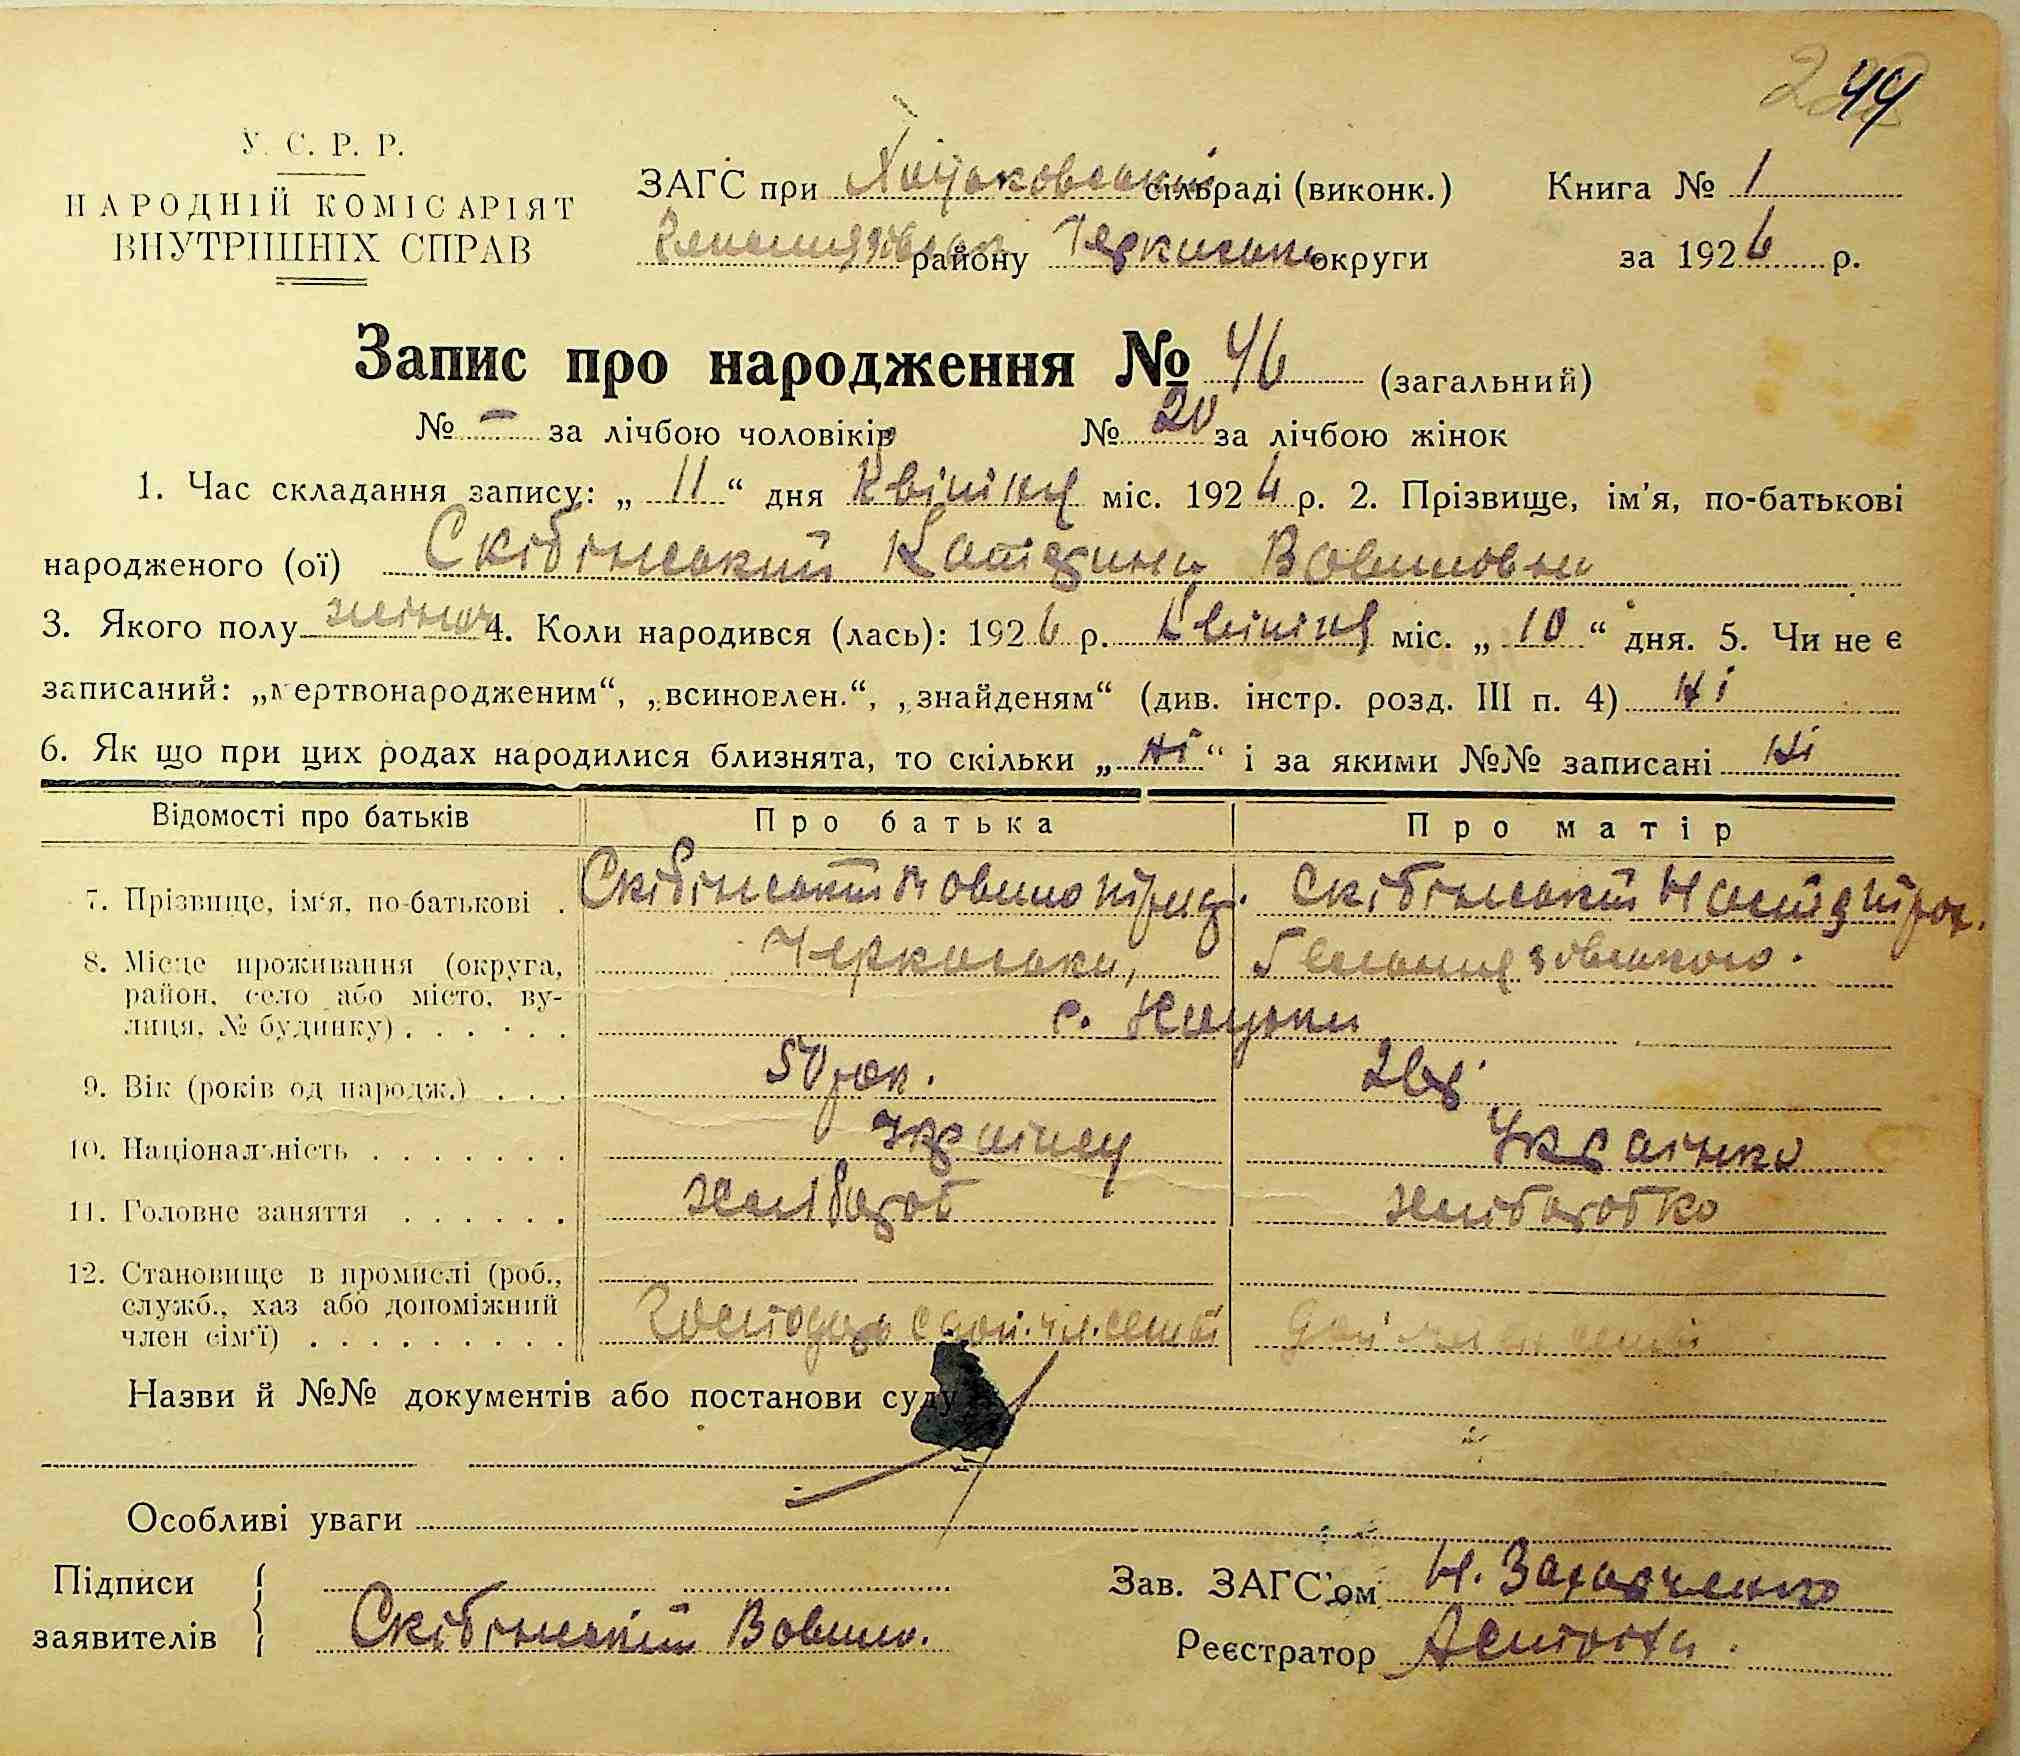 249
У. С. Р. Р.
НАРОДНІЙ КОМІСАРІЯТ
ВНУТРІШНІХ СПРАВ
ЗАГС при Хацьковській сільраді (виконк.) Книга № 1
району Черкаськ округи за 1926 р.
Запис про народження № 46 (загальний)
№ – за лічбою чоловіків № 20 за лічбою жінок
1. Час складання запису: „ 11 “ дня Квітня міс. 1926 р. 2. Прізвище, ім'я, по-батькові
народженого (ої) Скібінський Катерина Вавиловна
3. Якого полу жіноч 4. Коли народився (лась): 1926 р. Квітня міс. „ 10 “ дня. 5. Чи не є
записаний: „мертвонародженим“, „всиновлен.“, „знайденям“ (див. інстр. розд. III п. 4) Ні
6. Як що при цих родах народилися близнята, то скільки „ Ні “ і за якими №№ записані Ні
Відомості про батьків Про батька Про матір
7. Прізвище, ім'я, по-батькові . Скібінський Вавило Скібінський Наст
8. Місце проживання (округа, Черкаська,
район, село або місто, ву- с. Хацьки
лиця, № будинку) . . . . . .
9. Вік (років од народж.) . . . 50 рок. 26 р.
10. Національність . . . . . . . Українец Українка
11. Головне заняття . . . . . . Хлібороб Хліборобка
12. Становище в промислі (роб.,
служб., хаз або допоміжний
член сім'ї) . . . . . . . . . Господар
Назви й №№ документів або постанови суду
Особливі уваги
Підписи Зав. ЗАГС'ом Н. Захарченко
заявителів Скібінский Вавило. Реєстратор